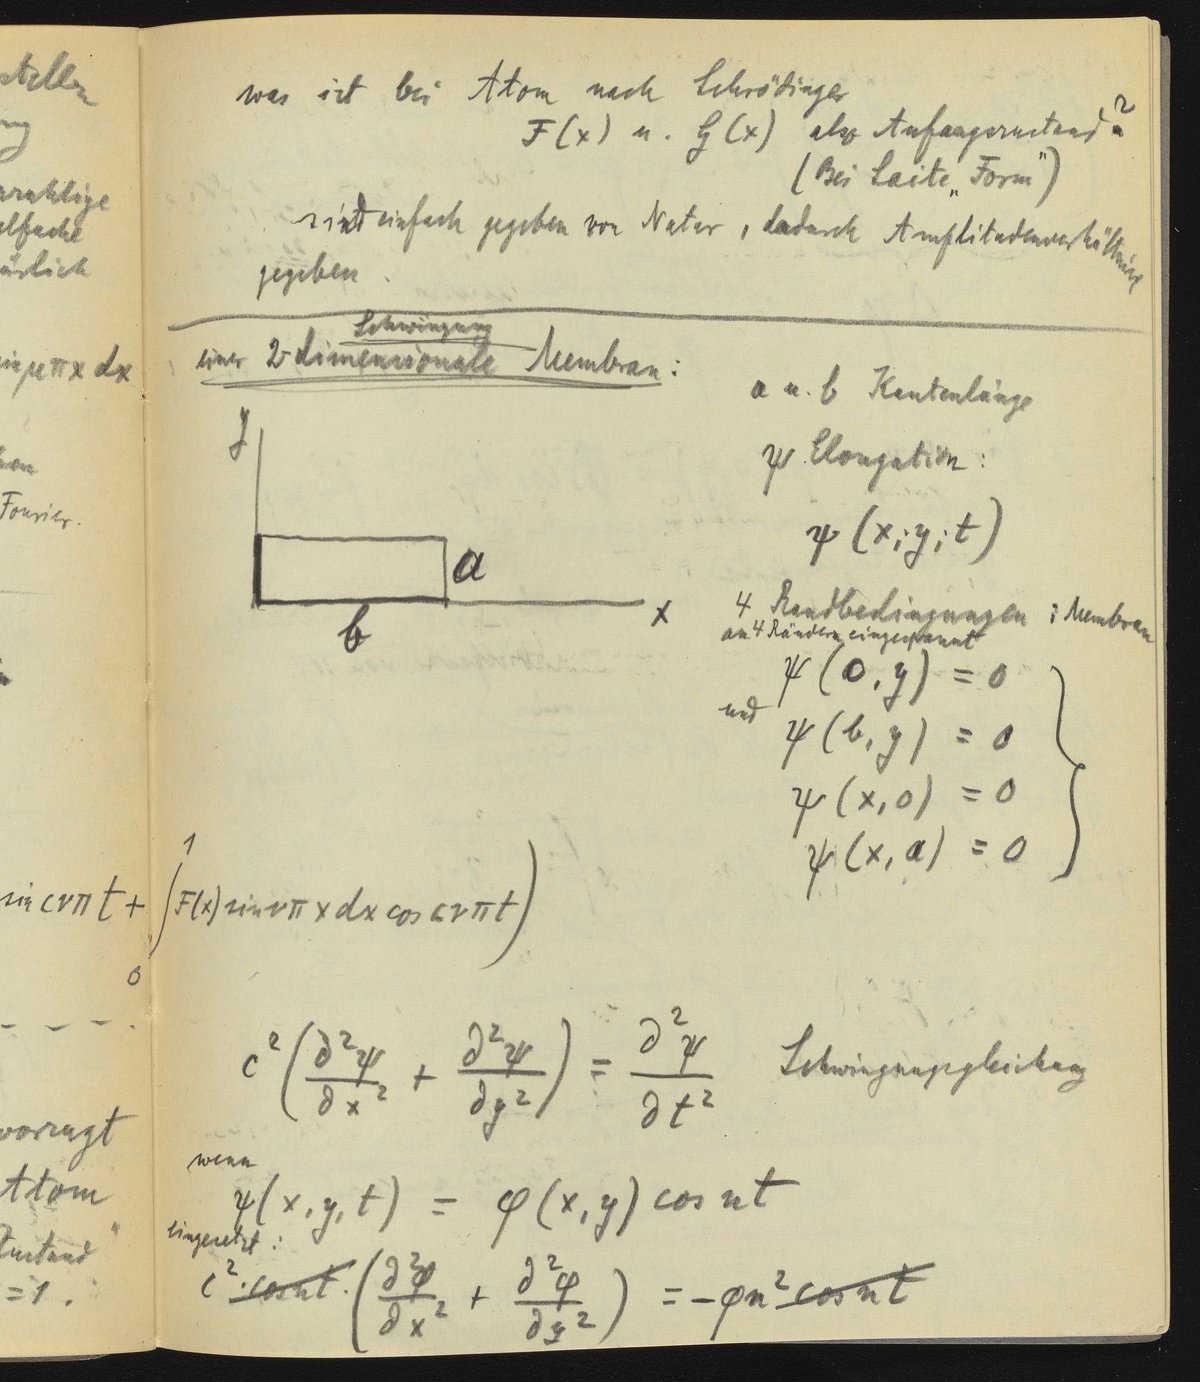 stellen
ng
nzahlige
elfache
ürlich
sin μπx dx
Fourier.
sin cνπt +
vorzugt
Atom
Zustand"
=1.
was ist bei Atom nach Schrödinger
F(x) u. G(x) als Anfangszustand?
(Bei Saite „Form")
sind einfach gegeben von Natur, dadurch Amplitudenverhältnisse
gegeben.
Schwingung
einer 2-dimensionale Membran:
a u. b Kantenlänge
ψ Elongation:
ψ(x; y; t)
y
a
b
x
4 Randbedingungen: Membran
an 4 Rändern eingespannt
ψ(0, y) = 0
und ψ(b, y) = 0
ψ(x, 0) = 0
ψ(x, a) = 0
∫₀¹ F(x) sin νπx dx cos cνπt)
c²(∂²ψ/∂x² + ∂²ψ/∂y²) = ∂²ψ/∂t² Schwingungsgleichung
wenn
ψ(x, y, t) = φ(x, y) cos nt
eingesetzt:
c² · cos nt · (∂²φ/∂x² + ∂²φ/∂y²) = -φn² cos nt